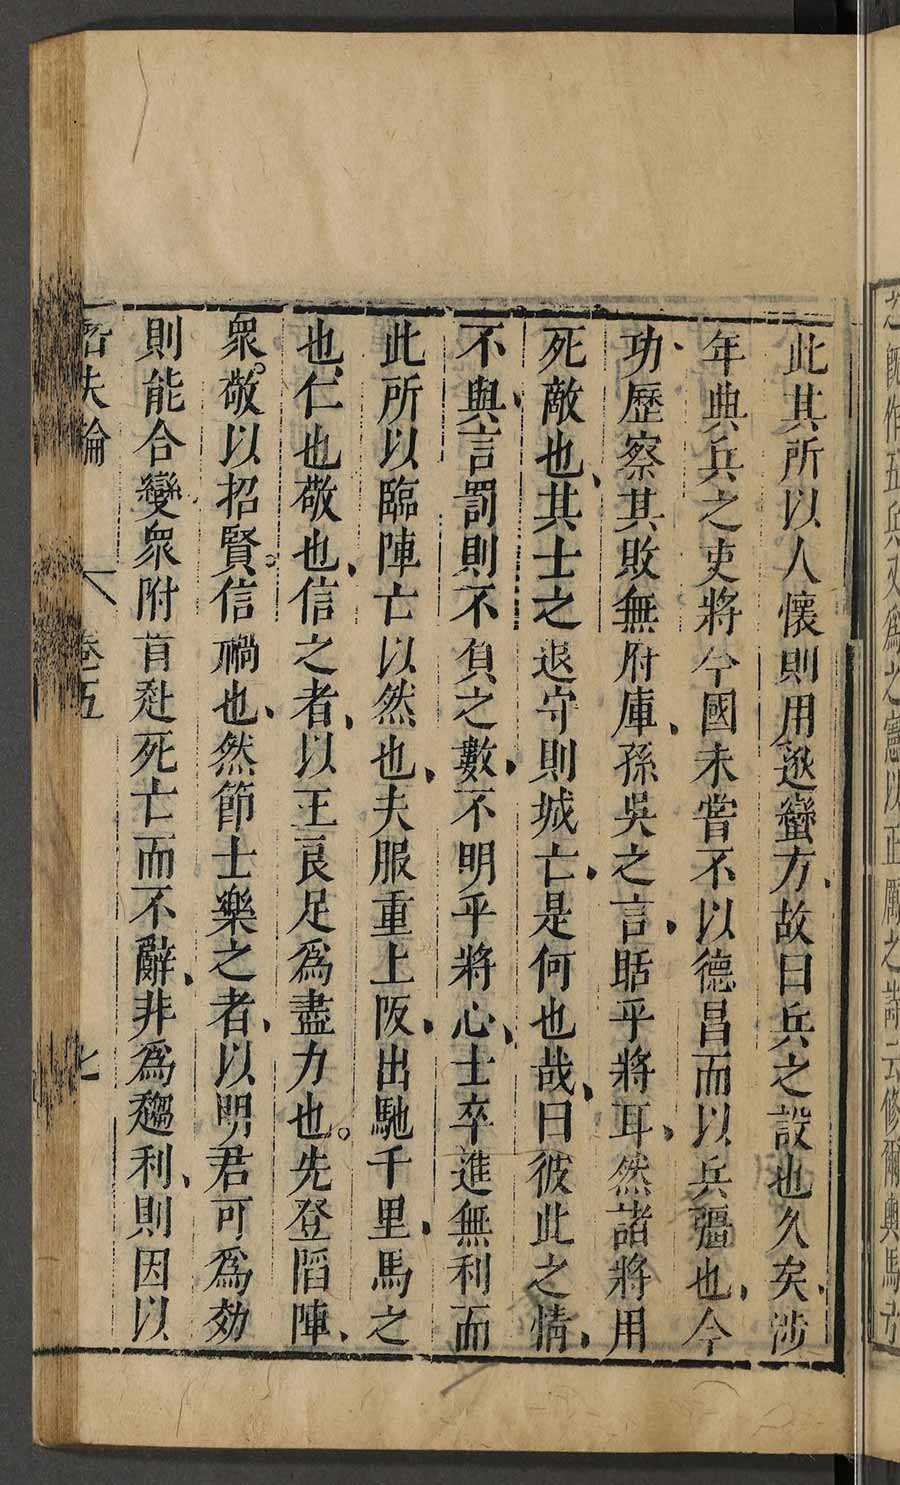 此其所以人懷則用逖蠻方故曰兵之設也久矣涉
年典兵之吏將今國未嘗不以德昌而以兵彊也今
功歷察其敗無府庫孫吳之言聒乎將耳然諸將用
死敵也其士之退守則城亡是何也哉曰彼此之情
不與言罰則不負之數不明乎將心士卒進無利而
此所以臨陣亡以然也夫服重上阪出馳千里馬之
也仁也敬也信之者以王良足為盡力也先登陷陣
衆敬以招賢信禍也然節士樂之者以明君可為効
則能合變衆附首赴死亡而不辭非為趨利則因以
卷五
七